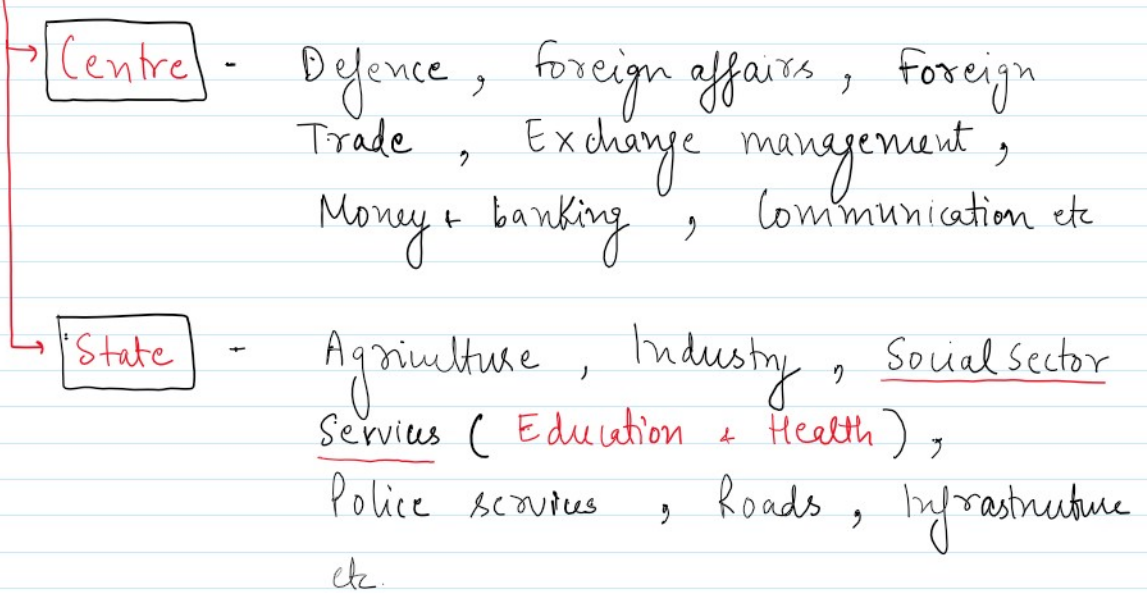 Centre - Defence, foreign affairs, Foreign
Trade, Exchange management,
Money & banking, Communication etc
State - Agriculture, Industry, Social sector
Services (Education & Health),
Police services, Roads, Infrastructure
etc.